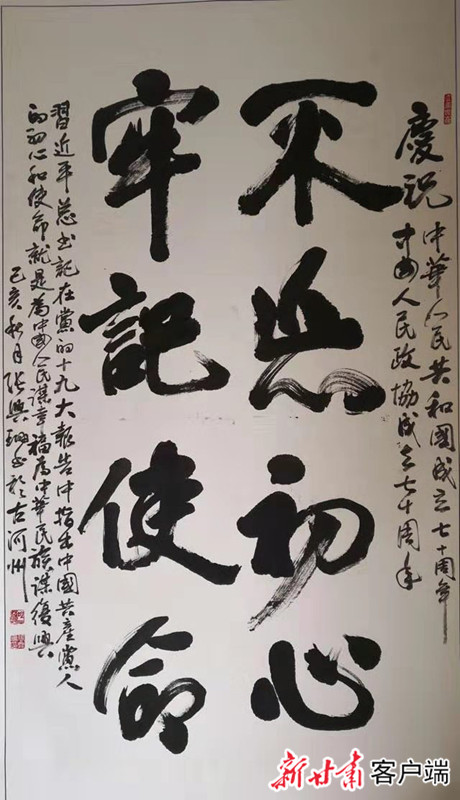 慶祝中華人民共和國成立七十周年
中国人民政協成立七十周年
不忘初心
牢記使命
習近平总书記在黨的十九大報告中指出中國共產黨人
的初心和使命就是為中國人民謀幸福為中华民族謀復興
己亥秋月张興 书於古河州
新甘肃客户端